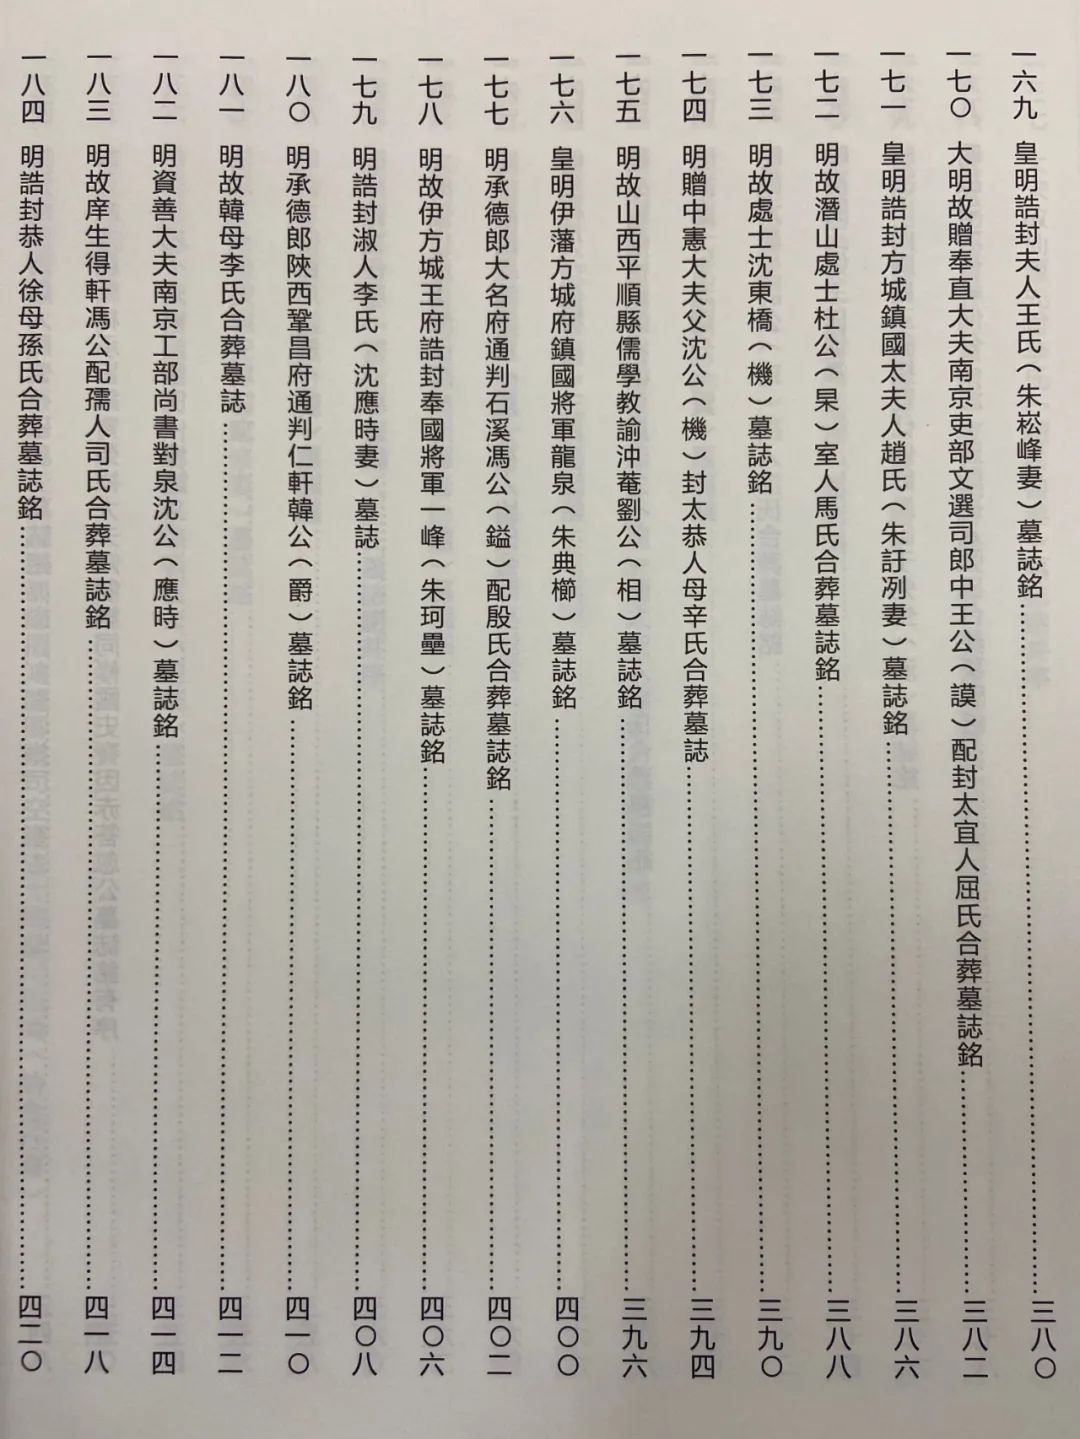 一六九 皇明誥封夫人王氏（朱崧峰妻）墓誌銘……三八〇
一七〇 大明故贈奉直大夫南京吏部文選司郎中王公（謨）配封太宜人屈氏合葬墓誌銘……三八二
一七一 皇明誥封方城鎮國太夫人趙氏（朱訏冽妻）墓誌銘……三八六
一七二 明故潛山處士杜公（杲）室人馬氏合葬墓誌銘……三八八
一七三 明故處士沈東橋（機）墓誌銘……三九〇
一七四 明贈中憲大夫父沈公（機）封太恭人母辛氏合葬墓誌……三九四
一七五 明故山西平順縣儒學教諭沖菴劉公（相）墓誌銘……三九六
一七六 皇明伊藩方城府鎮國將軍龍泉（朱典櫛）墓誌銘……四〇〇
一七七 明承德郎大名府通判石溪馮公（鎰）配殷氏合葬墓誌銘……四〇二
一七八 明故伊方城王府誥封奉國將軍一峰（朱珂壘）墓誌銘……四〇六
一七九 明誥封淑人李氏（沈應時妻）墓誌……四〇八
一八〇 明承德郎陝西鞏昌府通判仁軒韓公（爵）墓誌銘……四一〇
一八一 明故韓母李氏合葬墓誌……四一二
一八二 明資善大夫南京工部尚書對泉沈公（應時）墓誌銘……四一四
一八三 明故庠生得軒馮公配孺人司氏合葬墓誌銘……四一八
一八四 明誥封恭人徐母孫氏合葬墓誌銘……四二〇